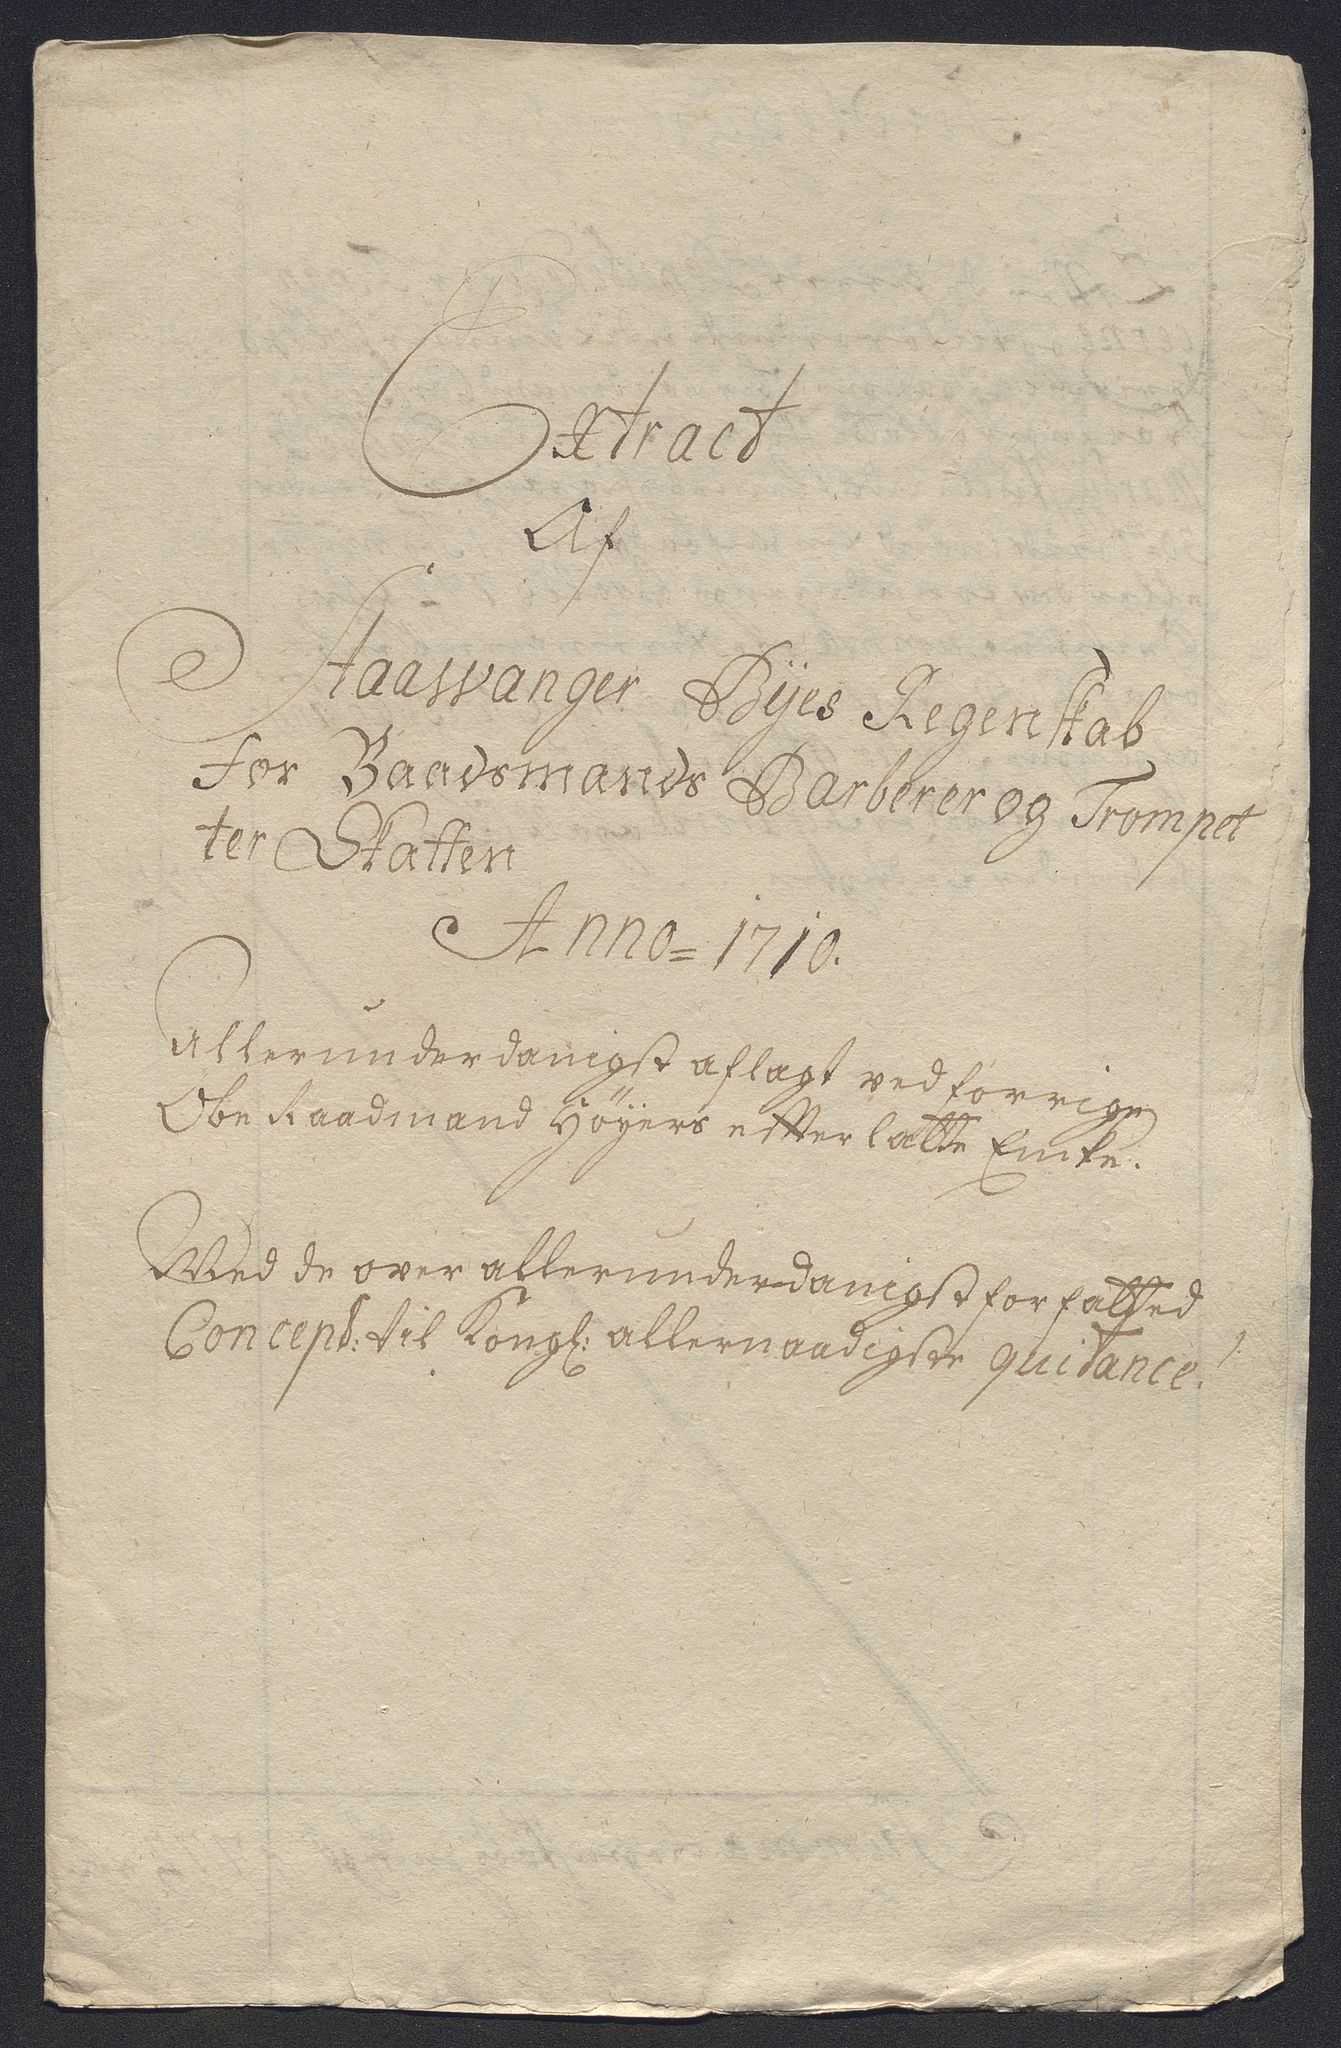 Extract
Af
Staawanger Bÿes Regenskab
for Baadsmands Barberer og Trompet
ter Skatten
Anno = 1710.
Allerunderdanigst aflagt ved forrige
Obe Raadmand Høÿers effterlatte Encke.
Med de over allerunderdanigst forfatted
Concept: til Kongl: allernaadigste quitance.